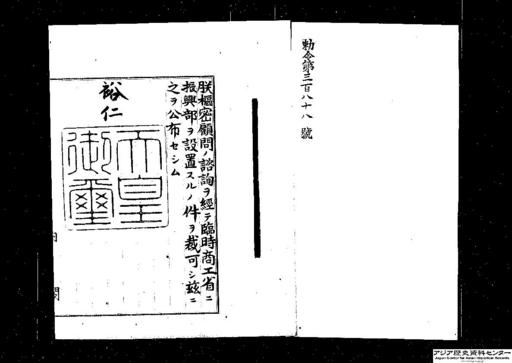 勅令第三百八十八號
朕樞密顧問ノ諮詢ヲ經テ臨時商工省ニ
振興部ヲ設置スルノ件ヲ裁可シ茲ニ
之ヲ公布セシム
裕仁
天皇
御璽
アジア歴史資料センター
Japan Center for Asian Historical Records